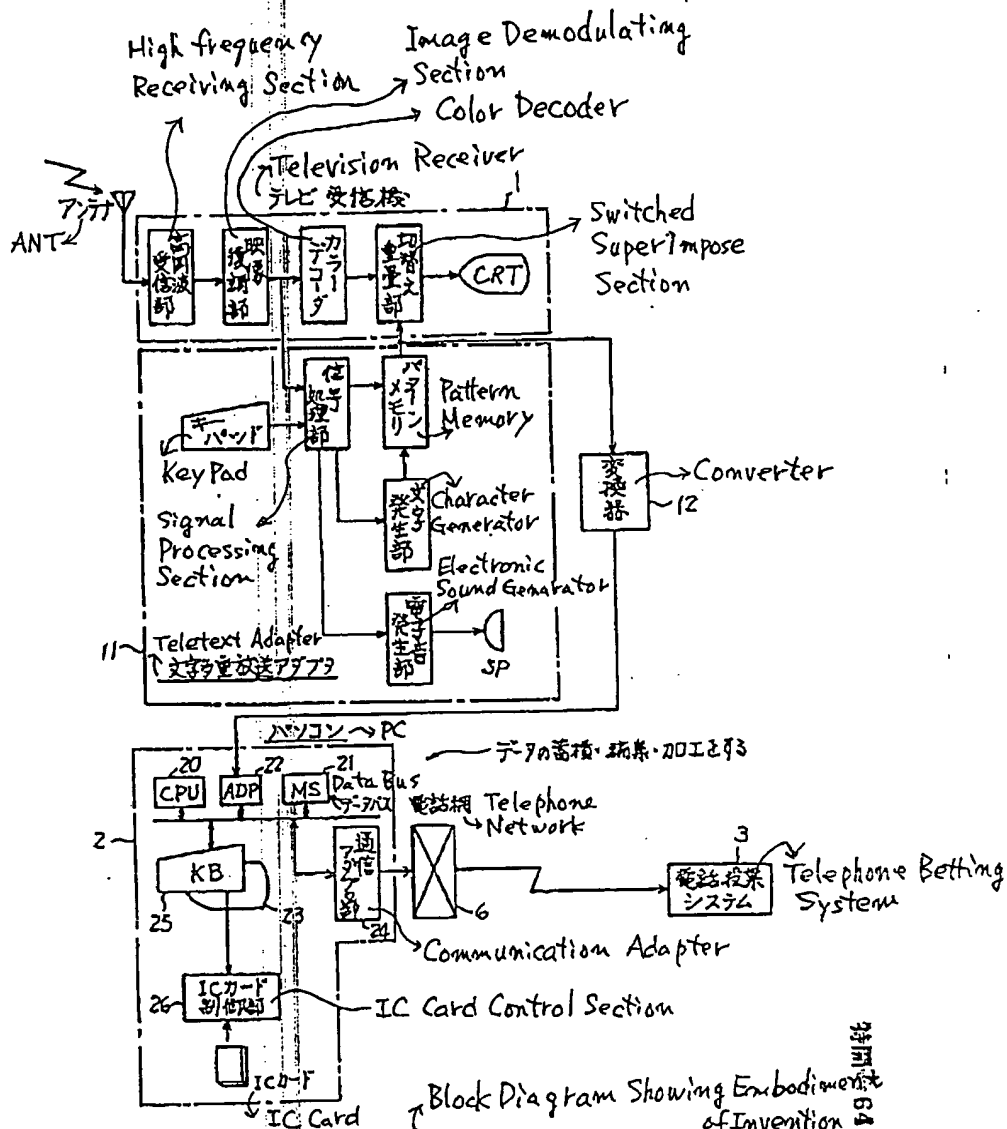 High frequency
Receiving Section
Image Demodulating
Section
Color Decoder
Television Receiver
テレビ受信機
1
アンテナ
ANT
高周波
受信部
映像
復調部
カラー
デコーダ
切替え
重畳部
CRT
Switched
SuperImpose
Section
信号
処理部
パターン
メモリ
Pattern
Memory
キー
パッド
KeyPad
Signal
Processing
Section
文字
発生部
Character
Generator
変換器
Comverter
12
Electronic
Sound Genarator
電子音
発生部
SP
11
Teletext Adapter
文字多重放送アダプタ
パソコン
PC
データの蓄積・編集・加工をする
20
22
21
CPU
ADP
MS
Data Bus
データバス
電話網
Telephone
Network
2
KB
25
23
通信
アダプタ部
24
6
3
電話投票
システム
Telephone Betting
System
Communication Adapter
26
ICカード
制御部
IC Card Control Section
ICカード
IC Card
Block Diagram Showing Embodiment
of Invention
特開 64